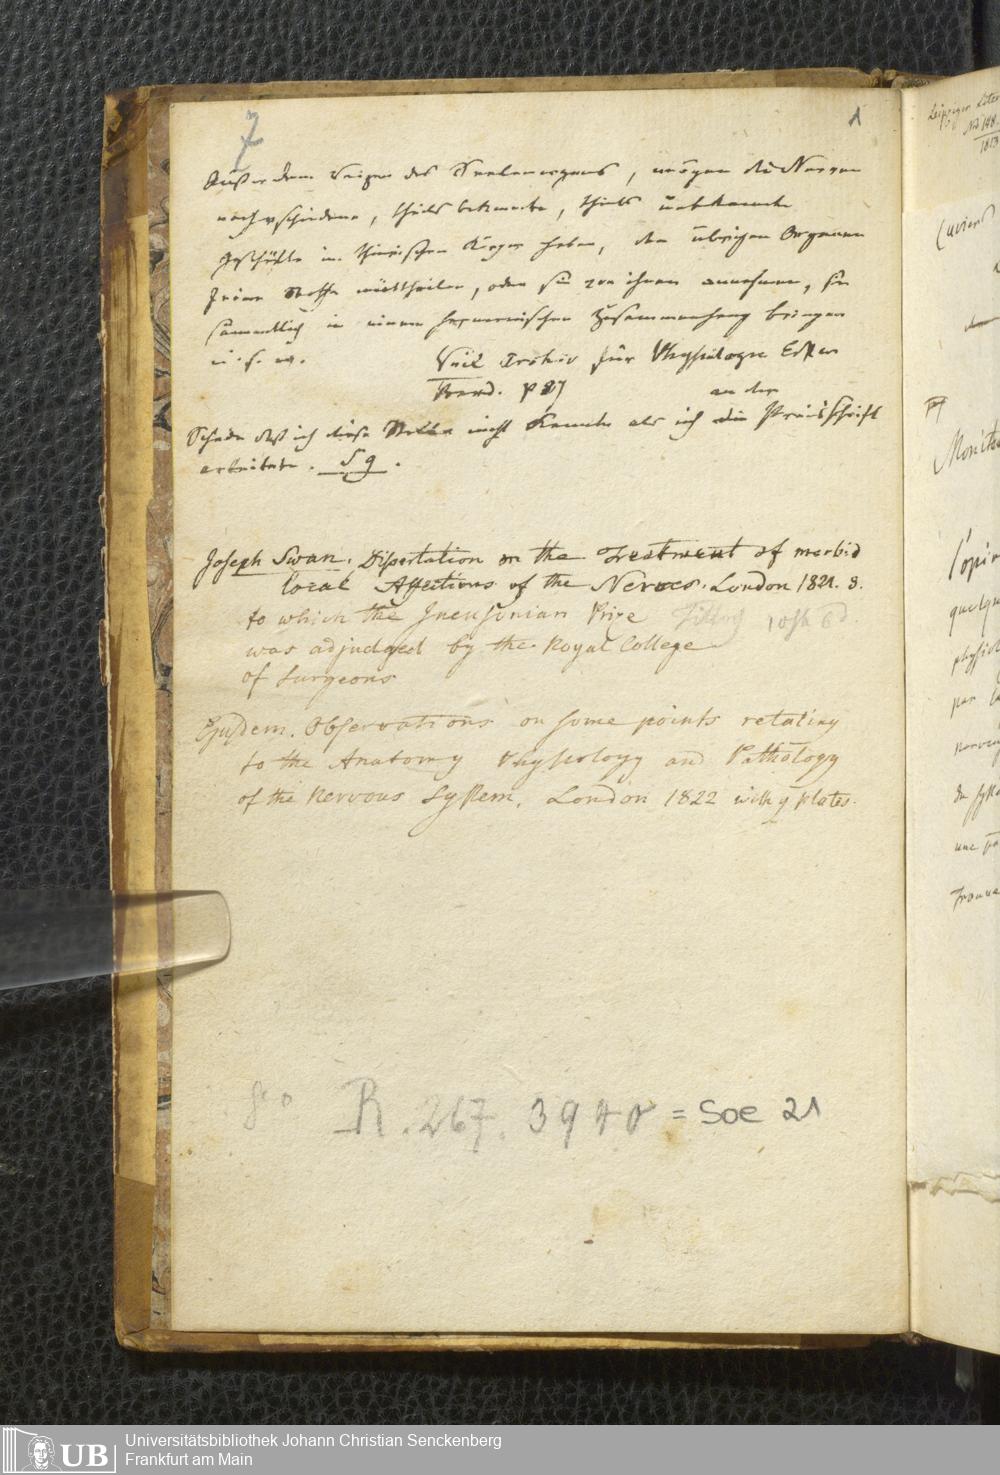 7
1
Außer dem Reizen des Seelenorgans, mögen die Nerven
noch verschiedene, theils bekannte, theils unbekannte
Geschäfte im thierischen Körper haben, den übrigen Organen
feine Stoffe mittheilen, oder sie von ihnen annehmen, sie
sämmentlich in einen harmonischen Zusammenhang bringen
u. s. w.
Reil Archiv für Physiologie Erster
Band. p 87
an der
Schade daß ich diese Stelle nicht kannte als ich die Preisschrift
arbeitete. Sg.
Joseph Swan. Dissertation on the Treatment of morbid
local Affections of the Nerves. London 1821. 8.
to which the Jacksonian Prize 10sh 6d.
was adjudged by the Royal College
of Surgeons
Ejusdem. Observations on some points relating
to the Anatomy Physiology and Pathology
of the Nervous System. London 1822 with 9 plates.
R. 267. 3940 = Soe 21
Leipziger Liter
No 148
1813
(uviers)
Monit
l'opin
quelqu
physiol
par
nerveu
du syste
une pa
UB
Universitätsbibliothek Johann Christian Senckenberg
Frankfurt am Main